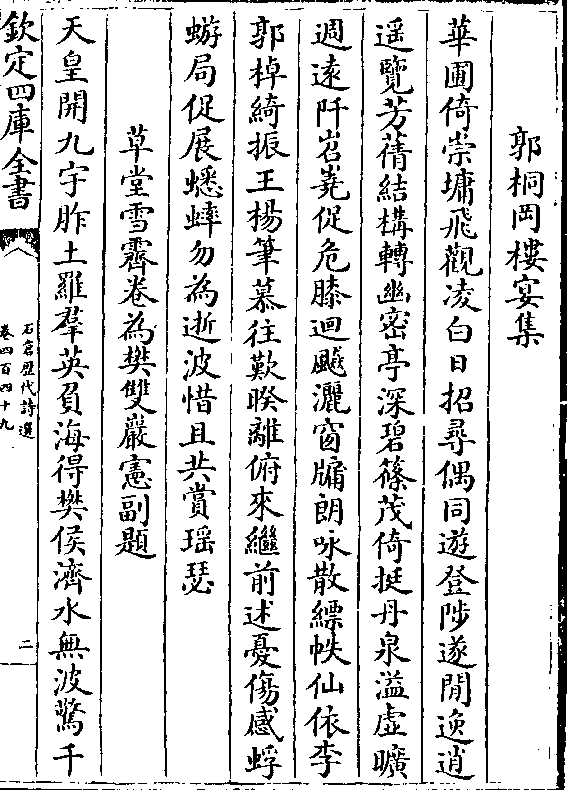 郭桐岡樓宴集
華圃倚崇墉飛觀凌白日招尋偶同遊登陟遂閒逸逍
遥覽芳蒨結構轉幽密亭深碧篠茂倚挺丹泉溢虚曠
週遠阡岧嶤促危膝迴飈灑窗牖朗咏散縹帙仙依李
郭棹綺振王楊筆慕往歎暌離俯來繼前述憂傷感蜉
蝣局促展蟋蟀勿為逝波惜且共賞瑶瑟
草堂雪霽卷為樊雙巖憲副題
天皇開九宇胙土羅羣英負海得樊侯濟水無波驚千
欽定四庫全書
石倉歴代詩選
卷四百四十九
二